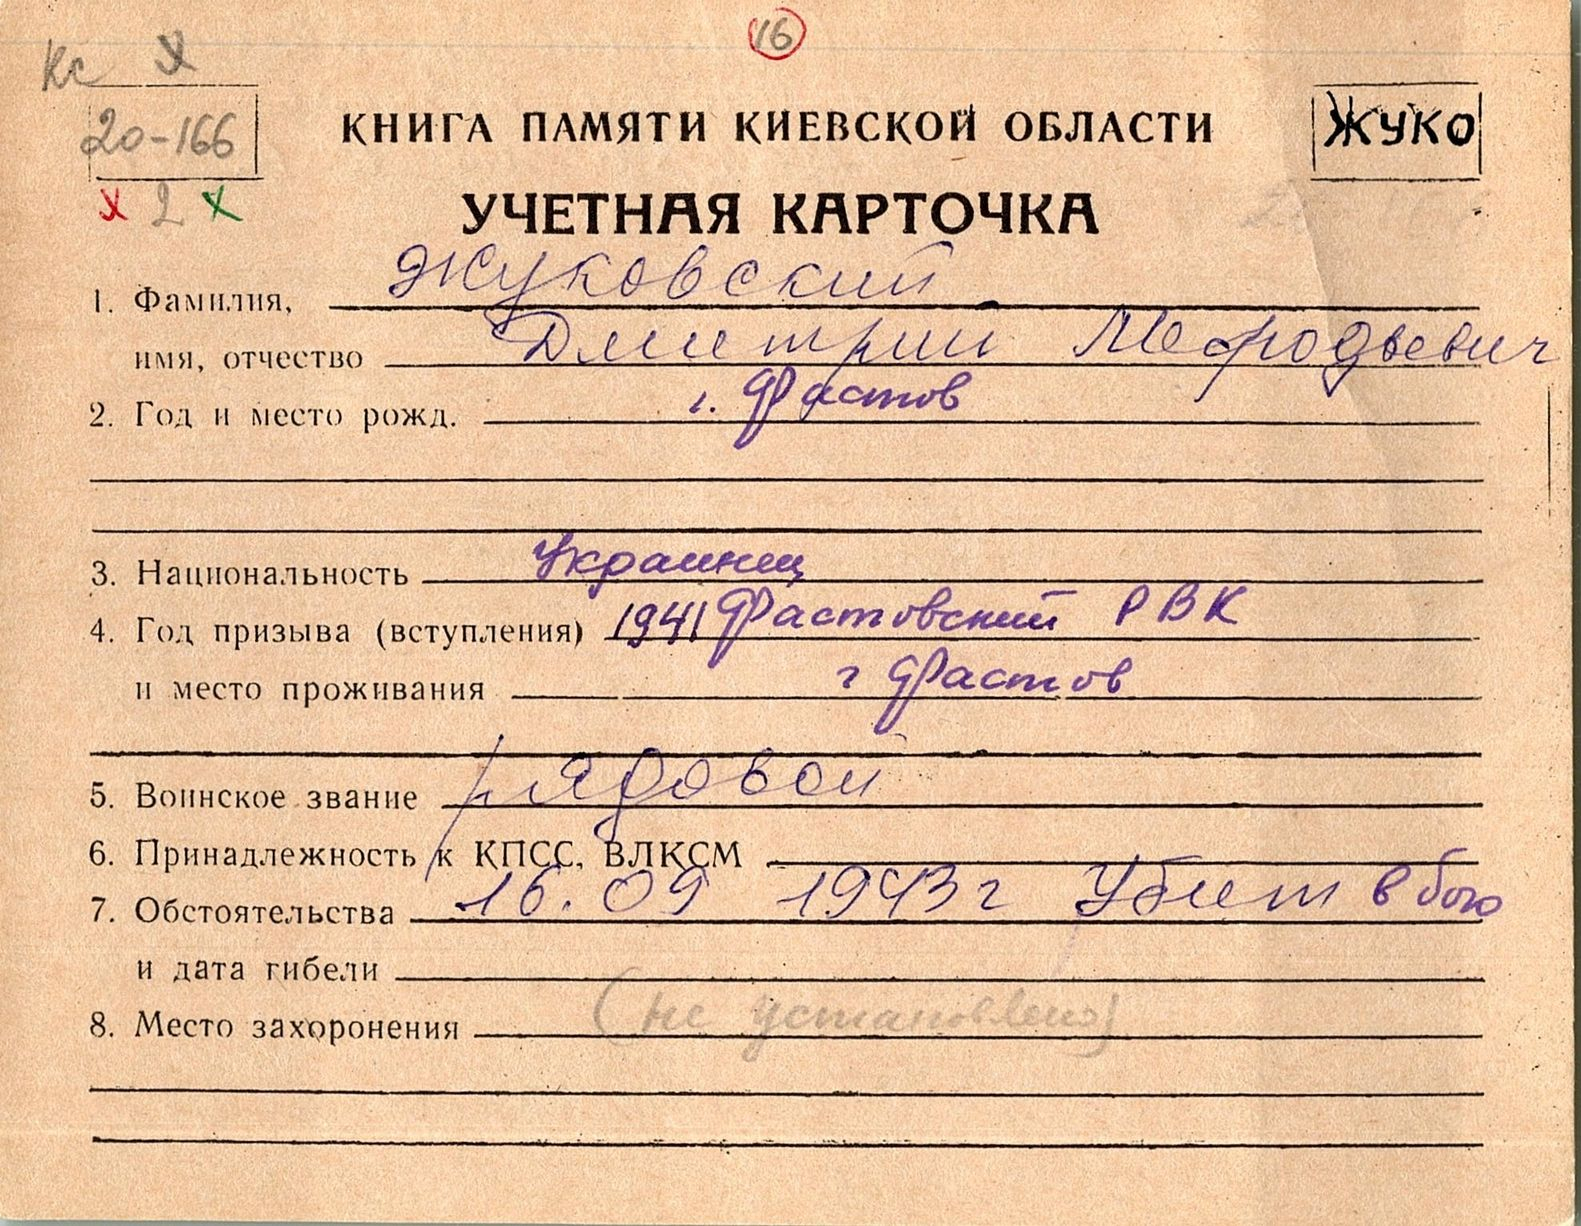 16
Кс х
20-166
х 2 х
ЖУКО
КНИГА ПАМЯТИ КИЕВСКОЙ ОБЛАСТИ
УЧЕТНАЯ КАРТОЧКА
1. Фамилия, Жуковский
имя, отчество Дмитрий Мефодьевич
2. Год и место рожд. г. Фастов
3. Национальность Украинец
4. Год призыва (вступления) 1941 Фастовский РВК
и место проживания г Фастов
5. Воинское звание рядовой
6. Принадлежность к КПСС, ВЛКСМ
7. Обстоятельства 16.09 1943 г Убит в бою
и дата гибели
8. Место захоронения (не установлено)